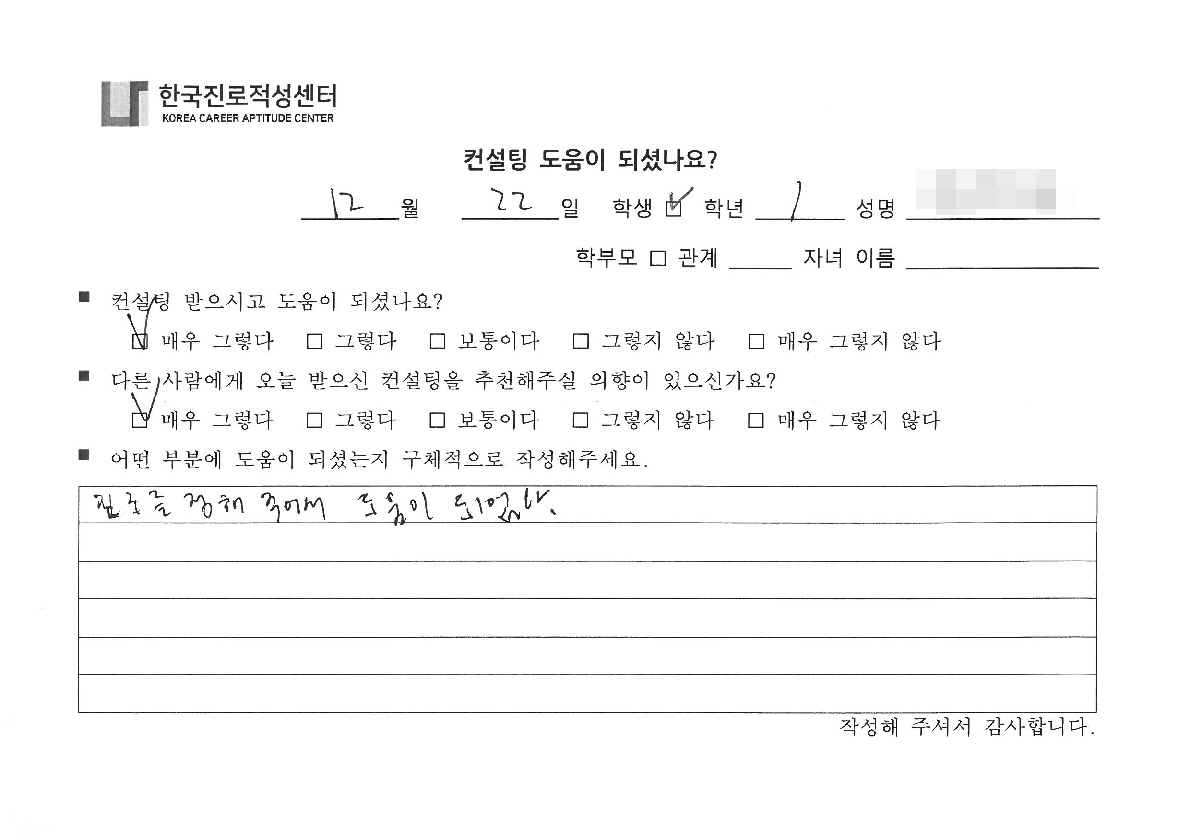 한국진로적성센터
KOREA CAREER APTITUDE CENTER
컨설팅 도움이 되셨나요?
12 월 22 일 학생 ☑ 학년 1 성명
학부모 □ 관계 자녀 이름
■ 컨설팅 받으시고 도움이 되셨나요?
☑ 매우 그렇다 □ 그렇다 □ 보통이다 □ 그렇지 않다 □ 매우 그렇지 않다
■ 다른 사람에게 오늘 받으신 컨설팅을 추천해주실 의향이 있으신가요?
☑ 매우 그렇다 □ 그렇다 □ 보통이다 □ 그렇지 않다 □ 매우 그렇지 않다
■ 어떤 부분에 도움이 되셨는지 구체적으로 작성해주세요.
진로를 정해 주어서 도움이 되었다.
작성해 주셔서 감사합니다.